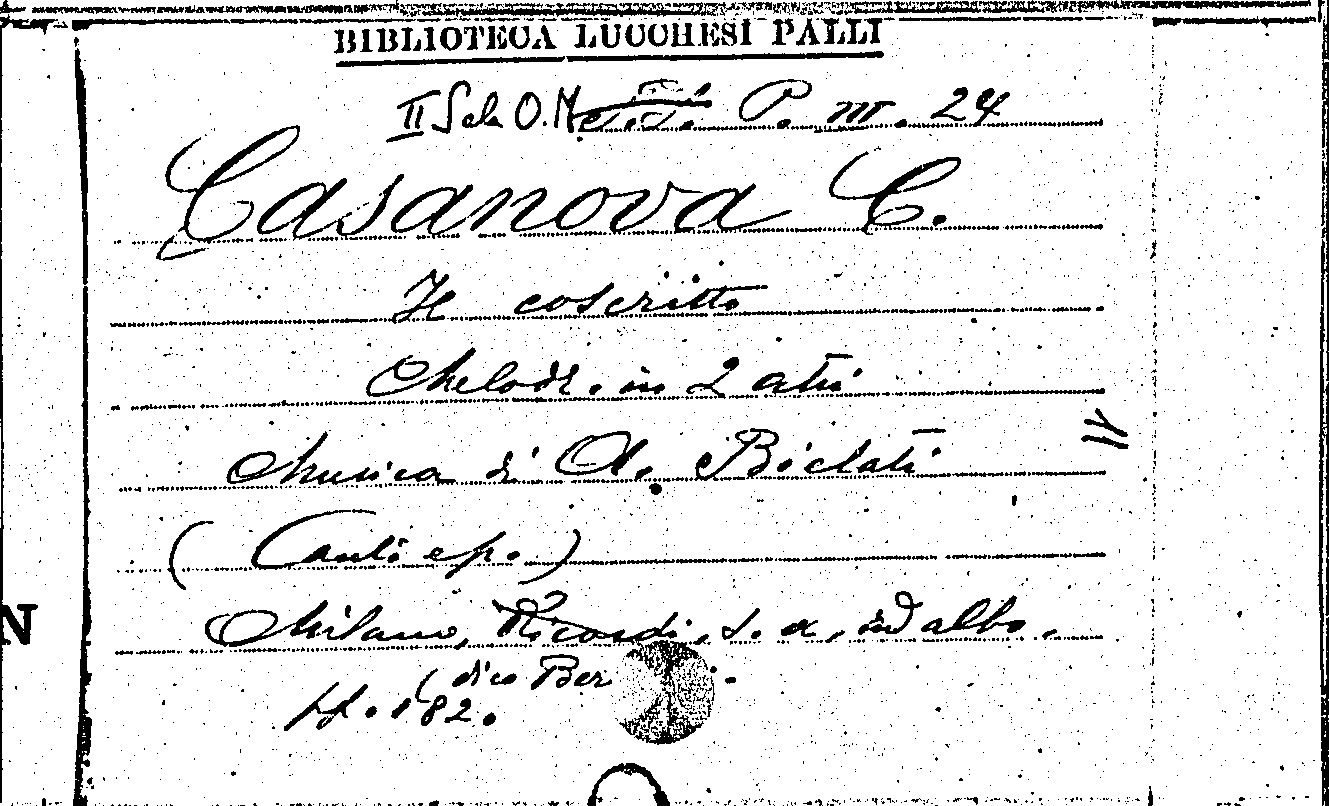 BIBLIOTECA LUCCHESI PALLI
II Sala O. M P. m. 24
Casanova C.
Il coscritto
Melodr. in 2 atti
Musica di A. Biclati
(Canto e p.)
Milano, Ricordi, s. a., in 4 albo.
(dica Ber
ff. 182.
N